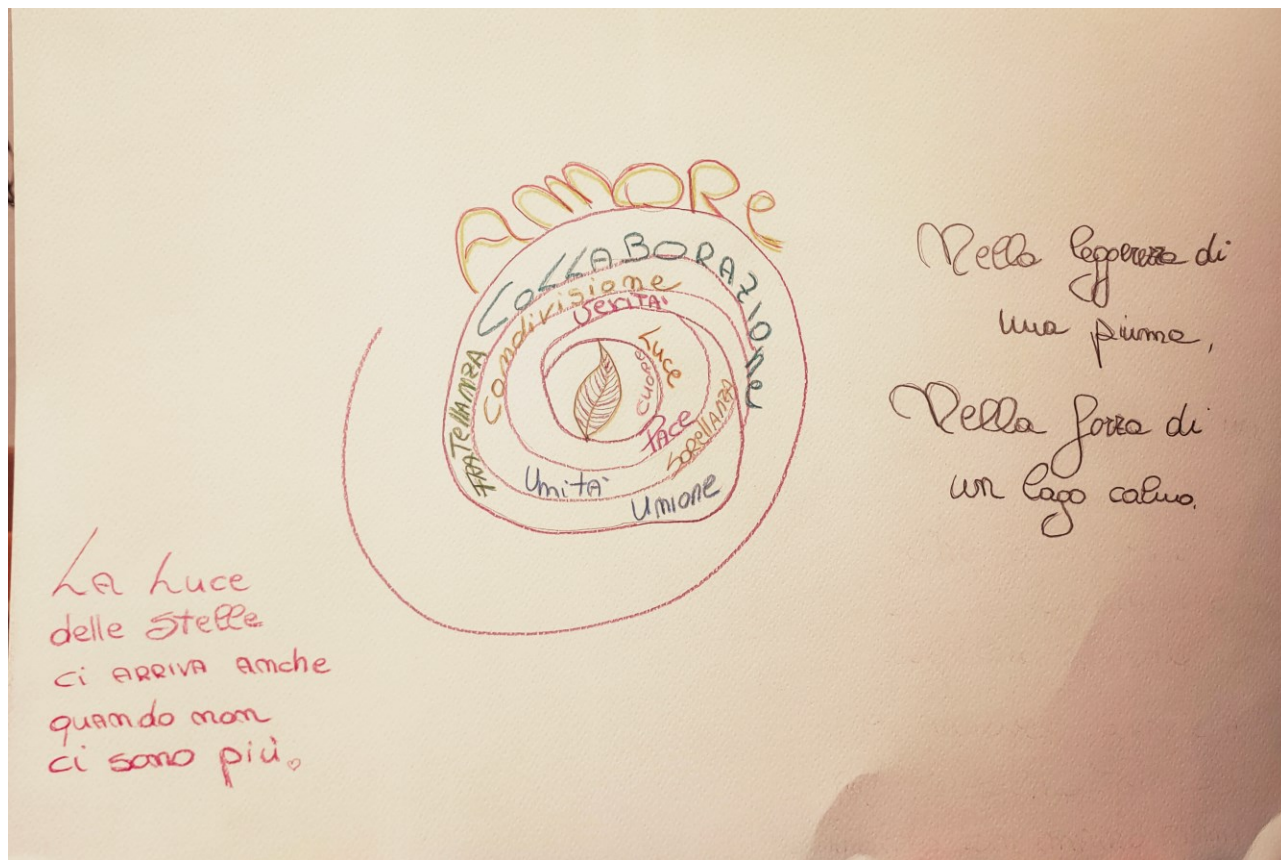 AMORE
COLLABORAZIONE
Condivisione
Verità
Luce
CUORE
Pace
SORELLANZA
FRATELLANZA
Unità
Unione
Nella leggerezza di
una piuma,
Nella forza di
un lago calmo.
La Luce
delle stelle
ci ARRIVA Anche
quando non
ci sono più.